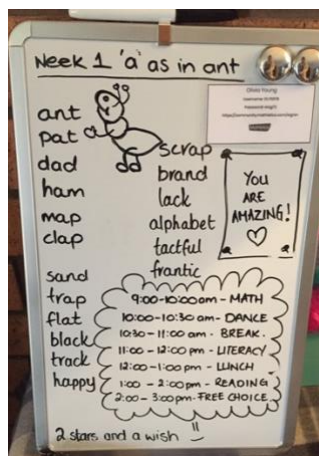 Week 1 'a' as in ant
Olivia Young
ant
pat
dad
ham
map
clap
sand
trap
flat
black
track
happy
scrap
brand
lack
alphabet
tactful
frantic
YOU
ARE
AMAZING!
9:00-10:00am - MATH
10:00-10:30am - DANCE
10:30-11:00am - BREAK.
11:00-12:00pm - LITERACY
12:00-1:00pm - LUNCH
1:00-2:00pm - READING
2:00-3:00pm - FREE CHOICE
2 stars and a wish